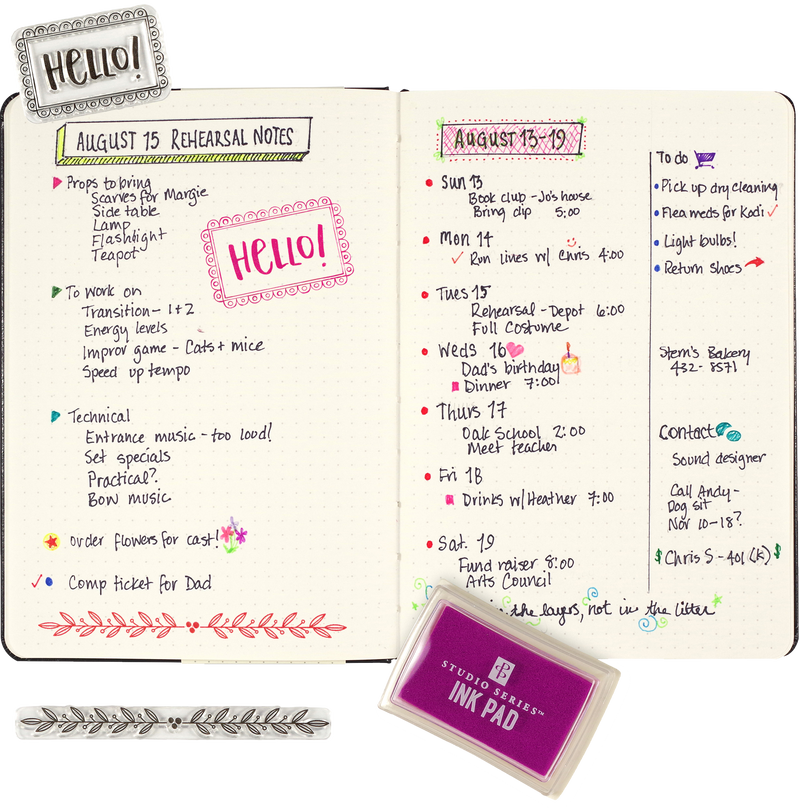 HELLO!
AUGUST 15 REHEARSAL NOTES
Props to bring
Scarves for Margie
Side table
Lamp
Flashlight
Teapot
HELLO!
To work on
Transition - 1+2
Energy levels
Improv game - Cats + mice
Speed up tempo
Technical
Entrance music - too loud!
Set specials
Practical?
Bow music
order flowers for cast!
Comp ticket for Dad
AUGUST 13-19
SUN 13
Book club - Jo's house
Bring dip 5:00
Mon 14
Run lines w/ Chris 4:00
Tues 15
Rehearsal - Depot 6:00
Full Costume
Weds 16
Dad's birthday
Dinner 7:00
Thurs 17
Oak School 2:00
Meet teacher
Fri 18
Drinks w/Heather 7:00
Sat. 19
Fund raiser 8:00
Arts Council
To do
Pick up dry cleaning
Flea meds for Kodi
Light bulbs!
Return shoes
Stern's Bakery
432-8571
Contact
Sound designer
Call Andy -
Dog sit
Nov 10-18?
$ Chris S - 401 (k) $
the layers, not in the litter
STUDIO SERIES™
INK PAD